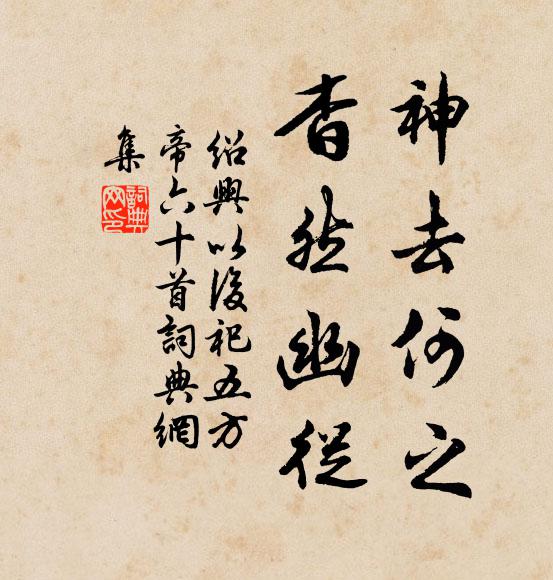 神去何之
杳然幽從
紹興以後祀五方
帝六十首詞典網
集
詞典
网印